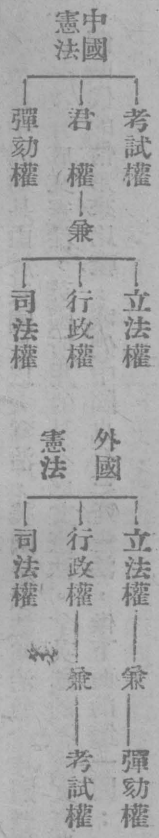 中國
憲法
考試權
君權 兼
彈劾權
立法權
行政權
司法權
外國
憲法
立法權 兼 彈劾權
行政權 兼 考試權
司法權